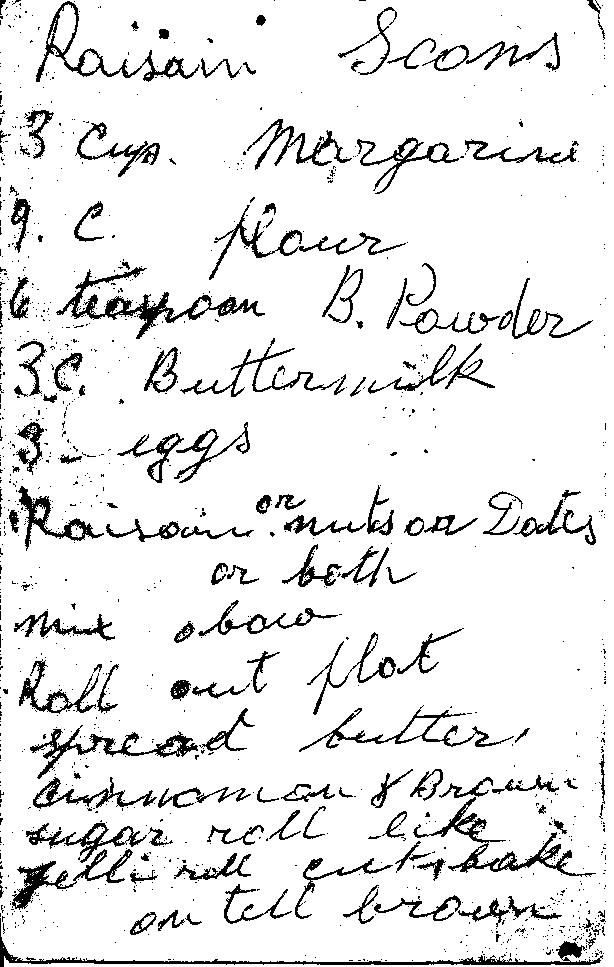 Raisain Scons
3 Cup. Margarine
9. C. flour
6 teaspoon B. Powder
3 C. Buttermilk
3 - eggs
Raisain or nuts or Dates
or both
mix abow
Roll out flat
spread butter,
cinnaman & Brown
sugar roll like
jelli roll cut, bake
on tell brown